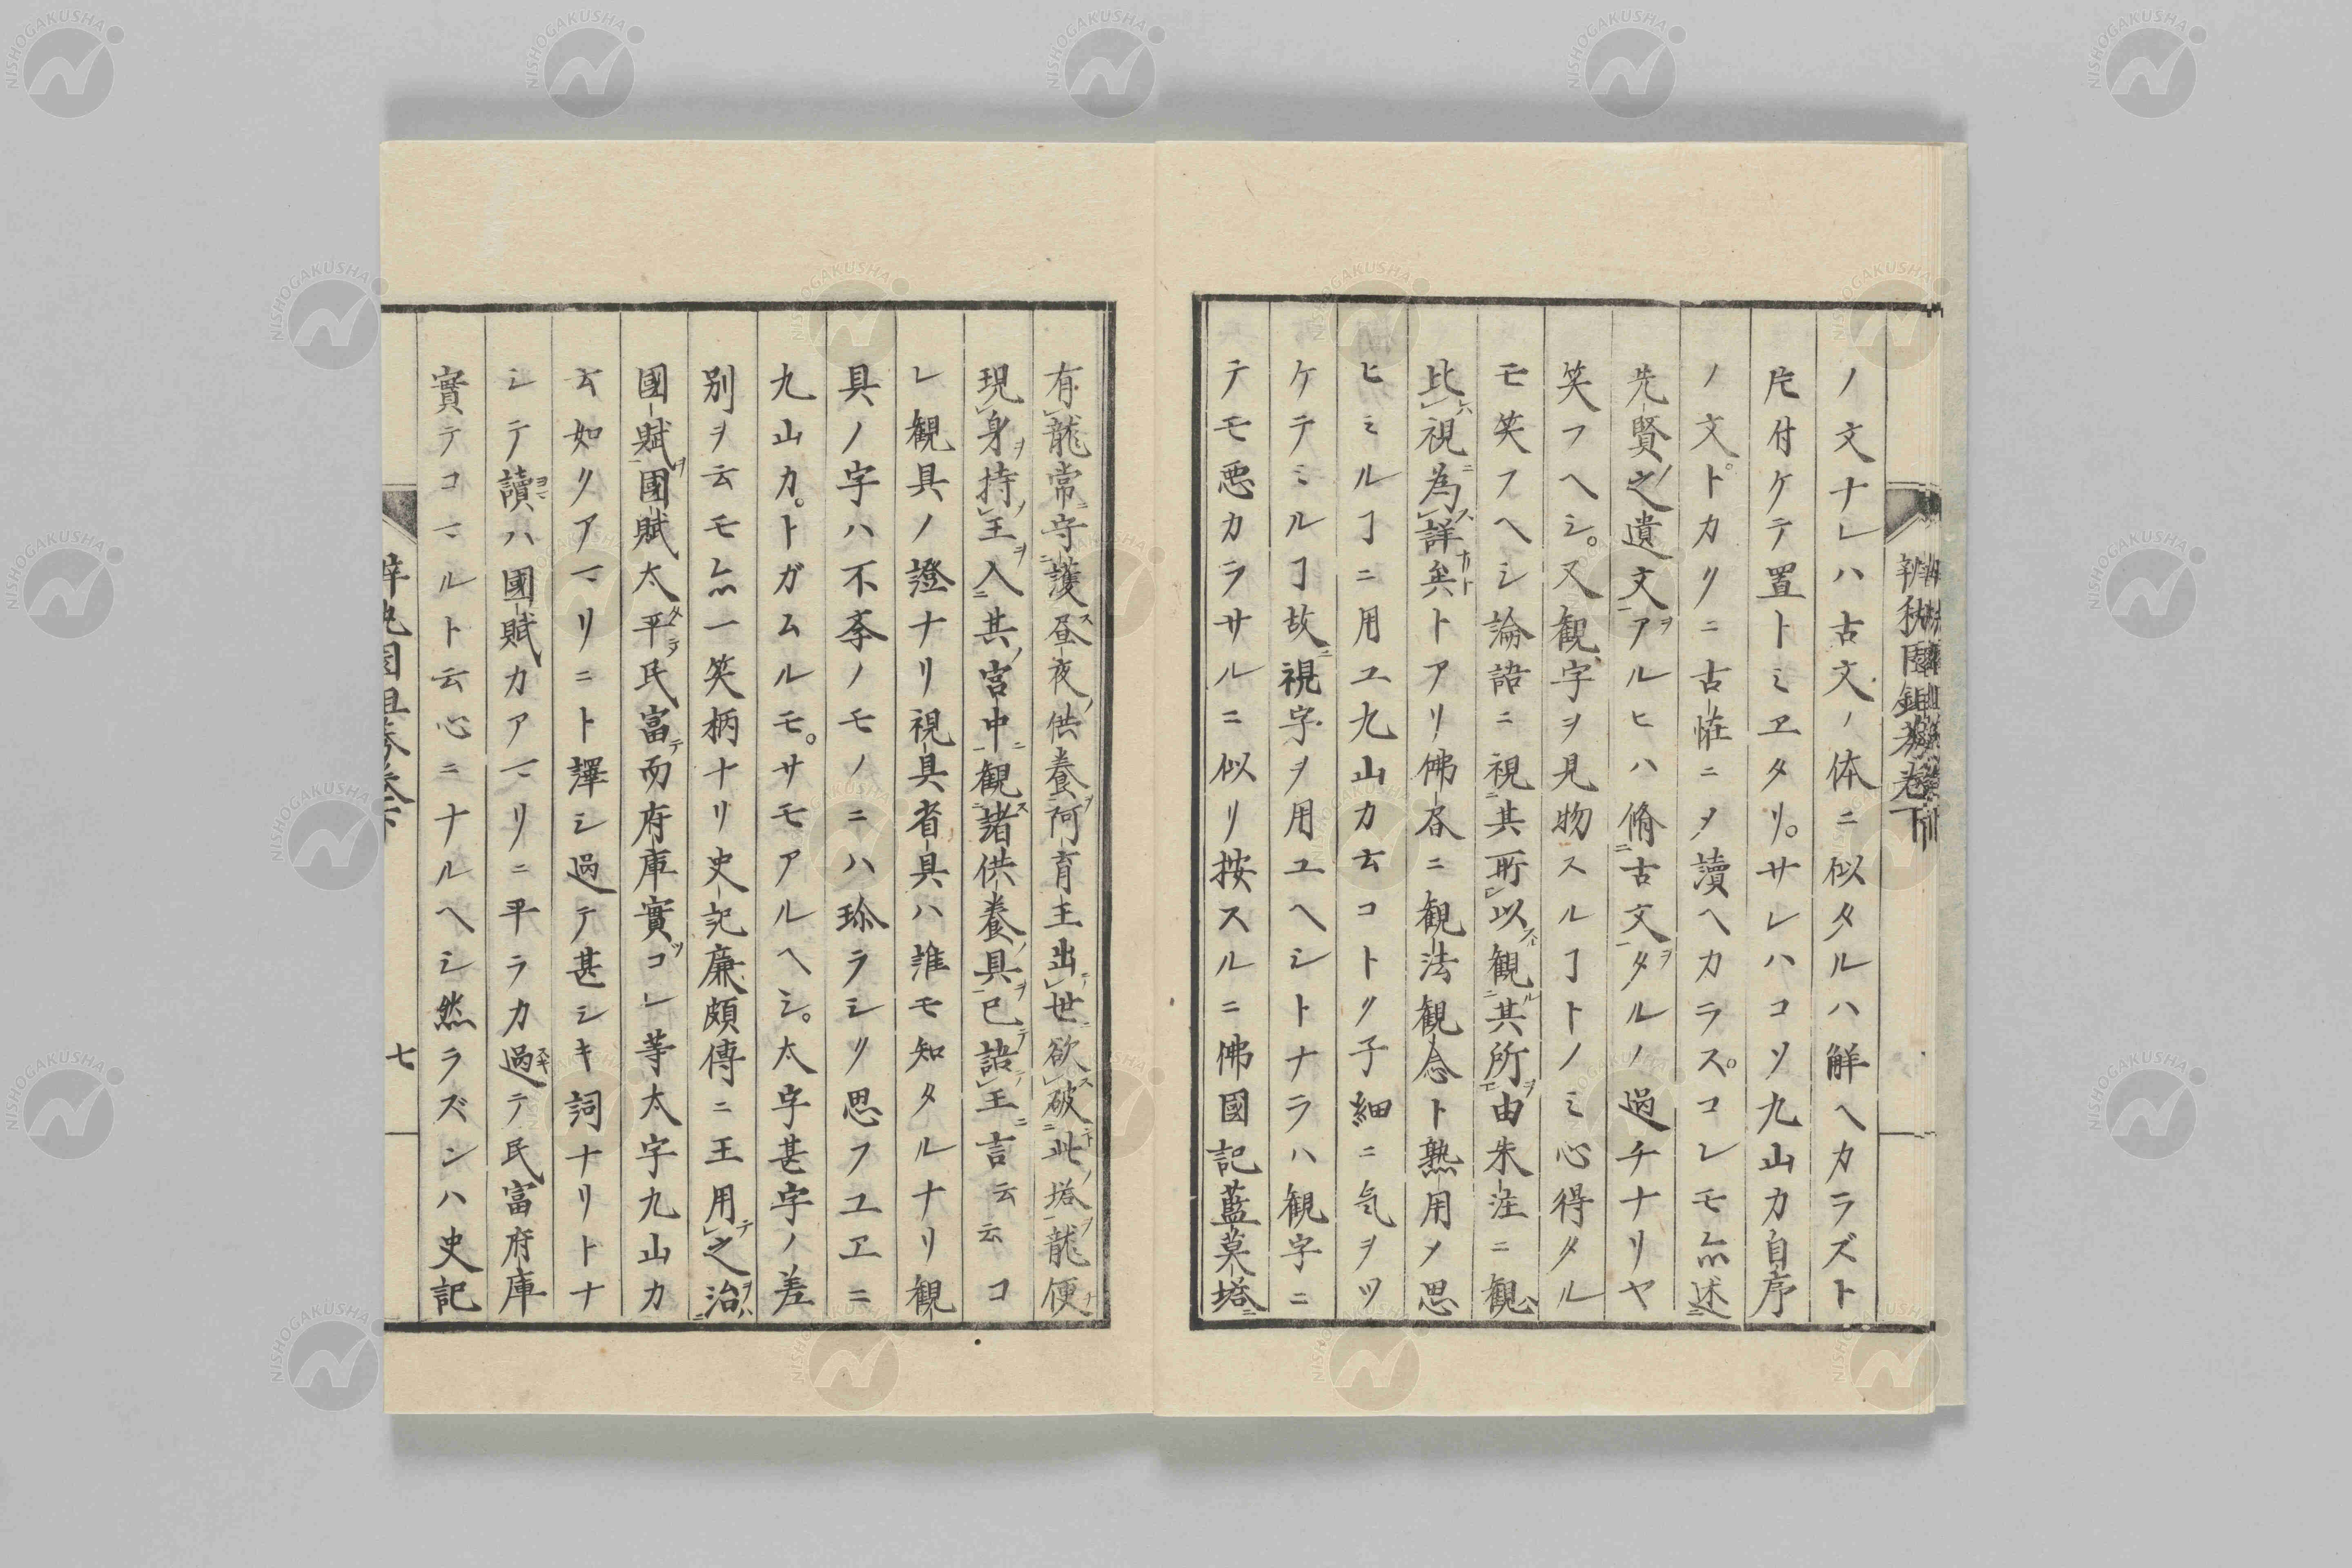 ノ文ナレハ古文ノ体ニ似タルハ解ヘカラズト
片付ケテ置トミヱタリ。サレハコソ九山カ自序
ノ文。トカリニ古怪ニヲ讀ヘカラス。コレモ亦述
先賢之遺文アルヒハ脩古文タルノ過チナリヤ
笑フヘシ。又観字ヲ見物スルヿトノミ心得タル
モ笑フヘシ論語ニ視其所以観其所由朱注ニ観
比視為詳矣トアリ佛名ニ観法観念ト熟用メ思
ヒミルヿニ用ユ九山カ云コトリ子細ニ気ヲツ
ケテミルヿ故視字ヲ用ユヘシトナラハ観字ニ
テモ悪カラサルニ似リ按スルニ佛國記藍莫塔
有龍常守護昼夜供養阿育王出世欲破此塔龍便
現身持王入其宮中観諸供養具已語王言云云コ
レ観具ノ證ナリ視具省具ハ誰モ知タルナリ観
具ノ字ハ不審ノモノニハ珍ラシリ思フユヱニ
九山カ。トガムルモ。サモアルヘシ。太字甚字ノ差
別ヲ云モ亦一笑柄ナリ史記廉頗傳ニ王用之治
國賦國賦太平民富而府庫實コレ等太字九山カ
云如リアマリニト譯シ過テ甚シキ詞ナリトナ
シテ讀ハ國賦カアマリニ平ラカ過テ民富府庫
實テコマルト云心ニナルヘシ然ラズンハ史記
七